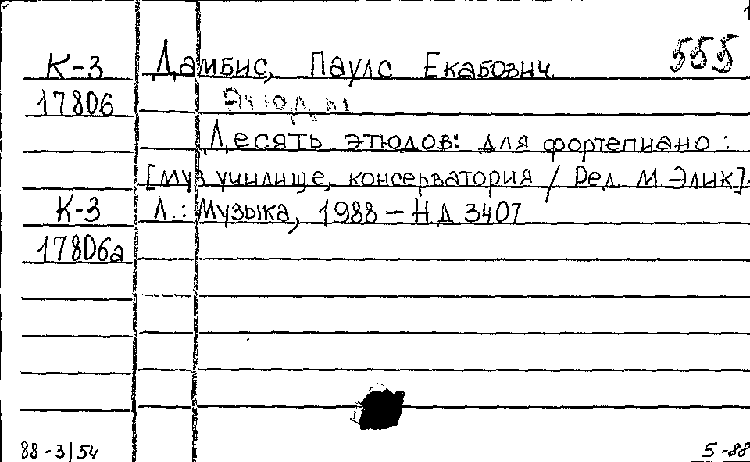 555
К-3 Дамбис, Паулс Екабович.
17806 Этюды
Десять этюдов: для фортепиано :
[муз училище, консерватория / Ред. М. Элик].
К-3 Л.: Музыка, 1988 – НД 3407
17806а
88-3/54 5-88